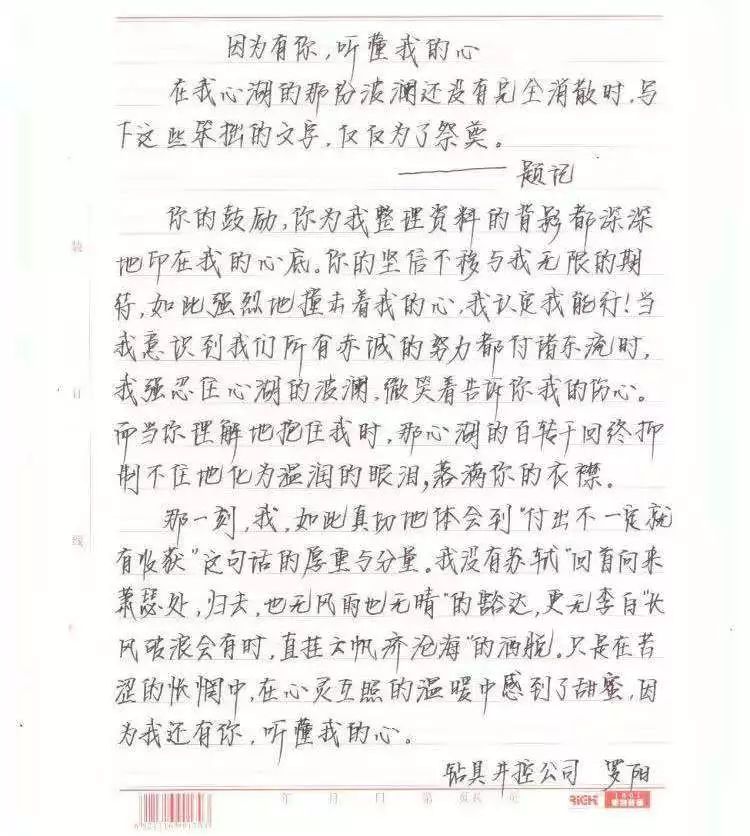 因为有你，听懂我的心
在我心湖的那份波澜还没有完全消散时，写
下这些笨拙的文字，仅仅为了祭奠。
——题记
你的鼓励，你为我整理资料的背影都深深
地印在我的心底。你的坚信不移与我无限的期
待，如此强烈地撞击着我的心，我认定我能行！当
我意识到我们所有赤诚的努力都付诸东流时，
我强忍住心湖的波澜，微笑着告诉你我的伤心。
而当你理解地抱住我时，那心湖的百转千回终抑
制不住地化为温润的眼泪，落满你的衣襟。
那一刻，我，如此真切地体会到“付出不一定就
有收获”这句话的厚重与分量。我没有苏轼“回首向来
萧瑟处，归去，也无风雨也无晴”的豁达，更无李白“长
风破浪会有时，直挂云帆济沧海”的洒脱。只是在苦
涩的怅惘中，在心灵互照的温暖中感到了甜蜜，因
为我还有你，听懂我的心。
钻具井控公司 罗阳
装
订
线
年 月 日 第 页
RiCH 1801